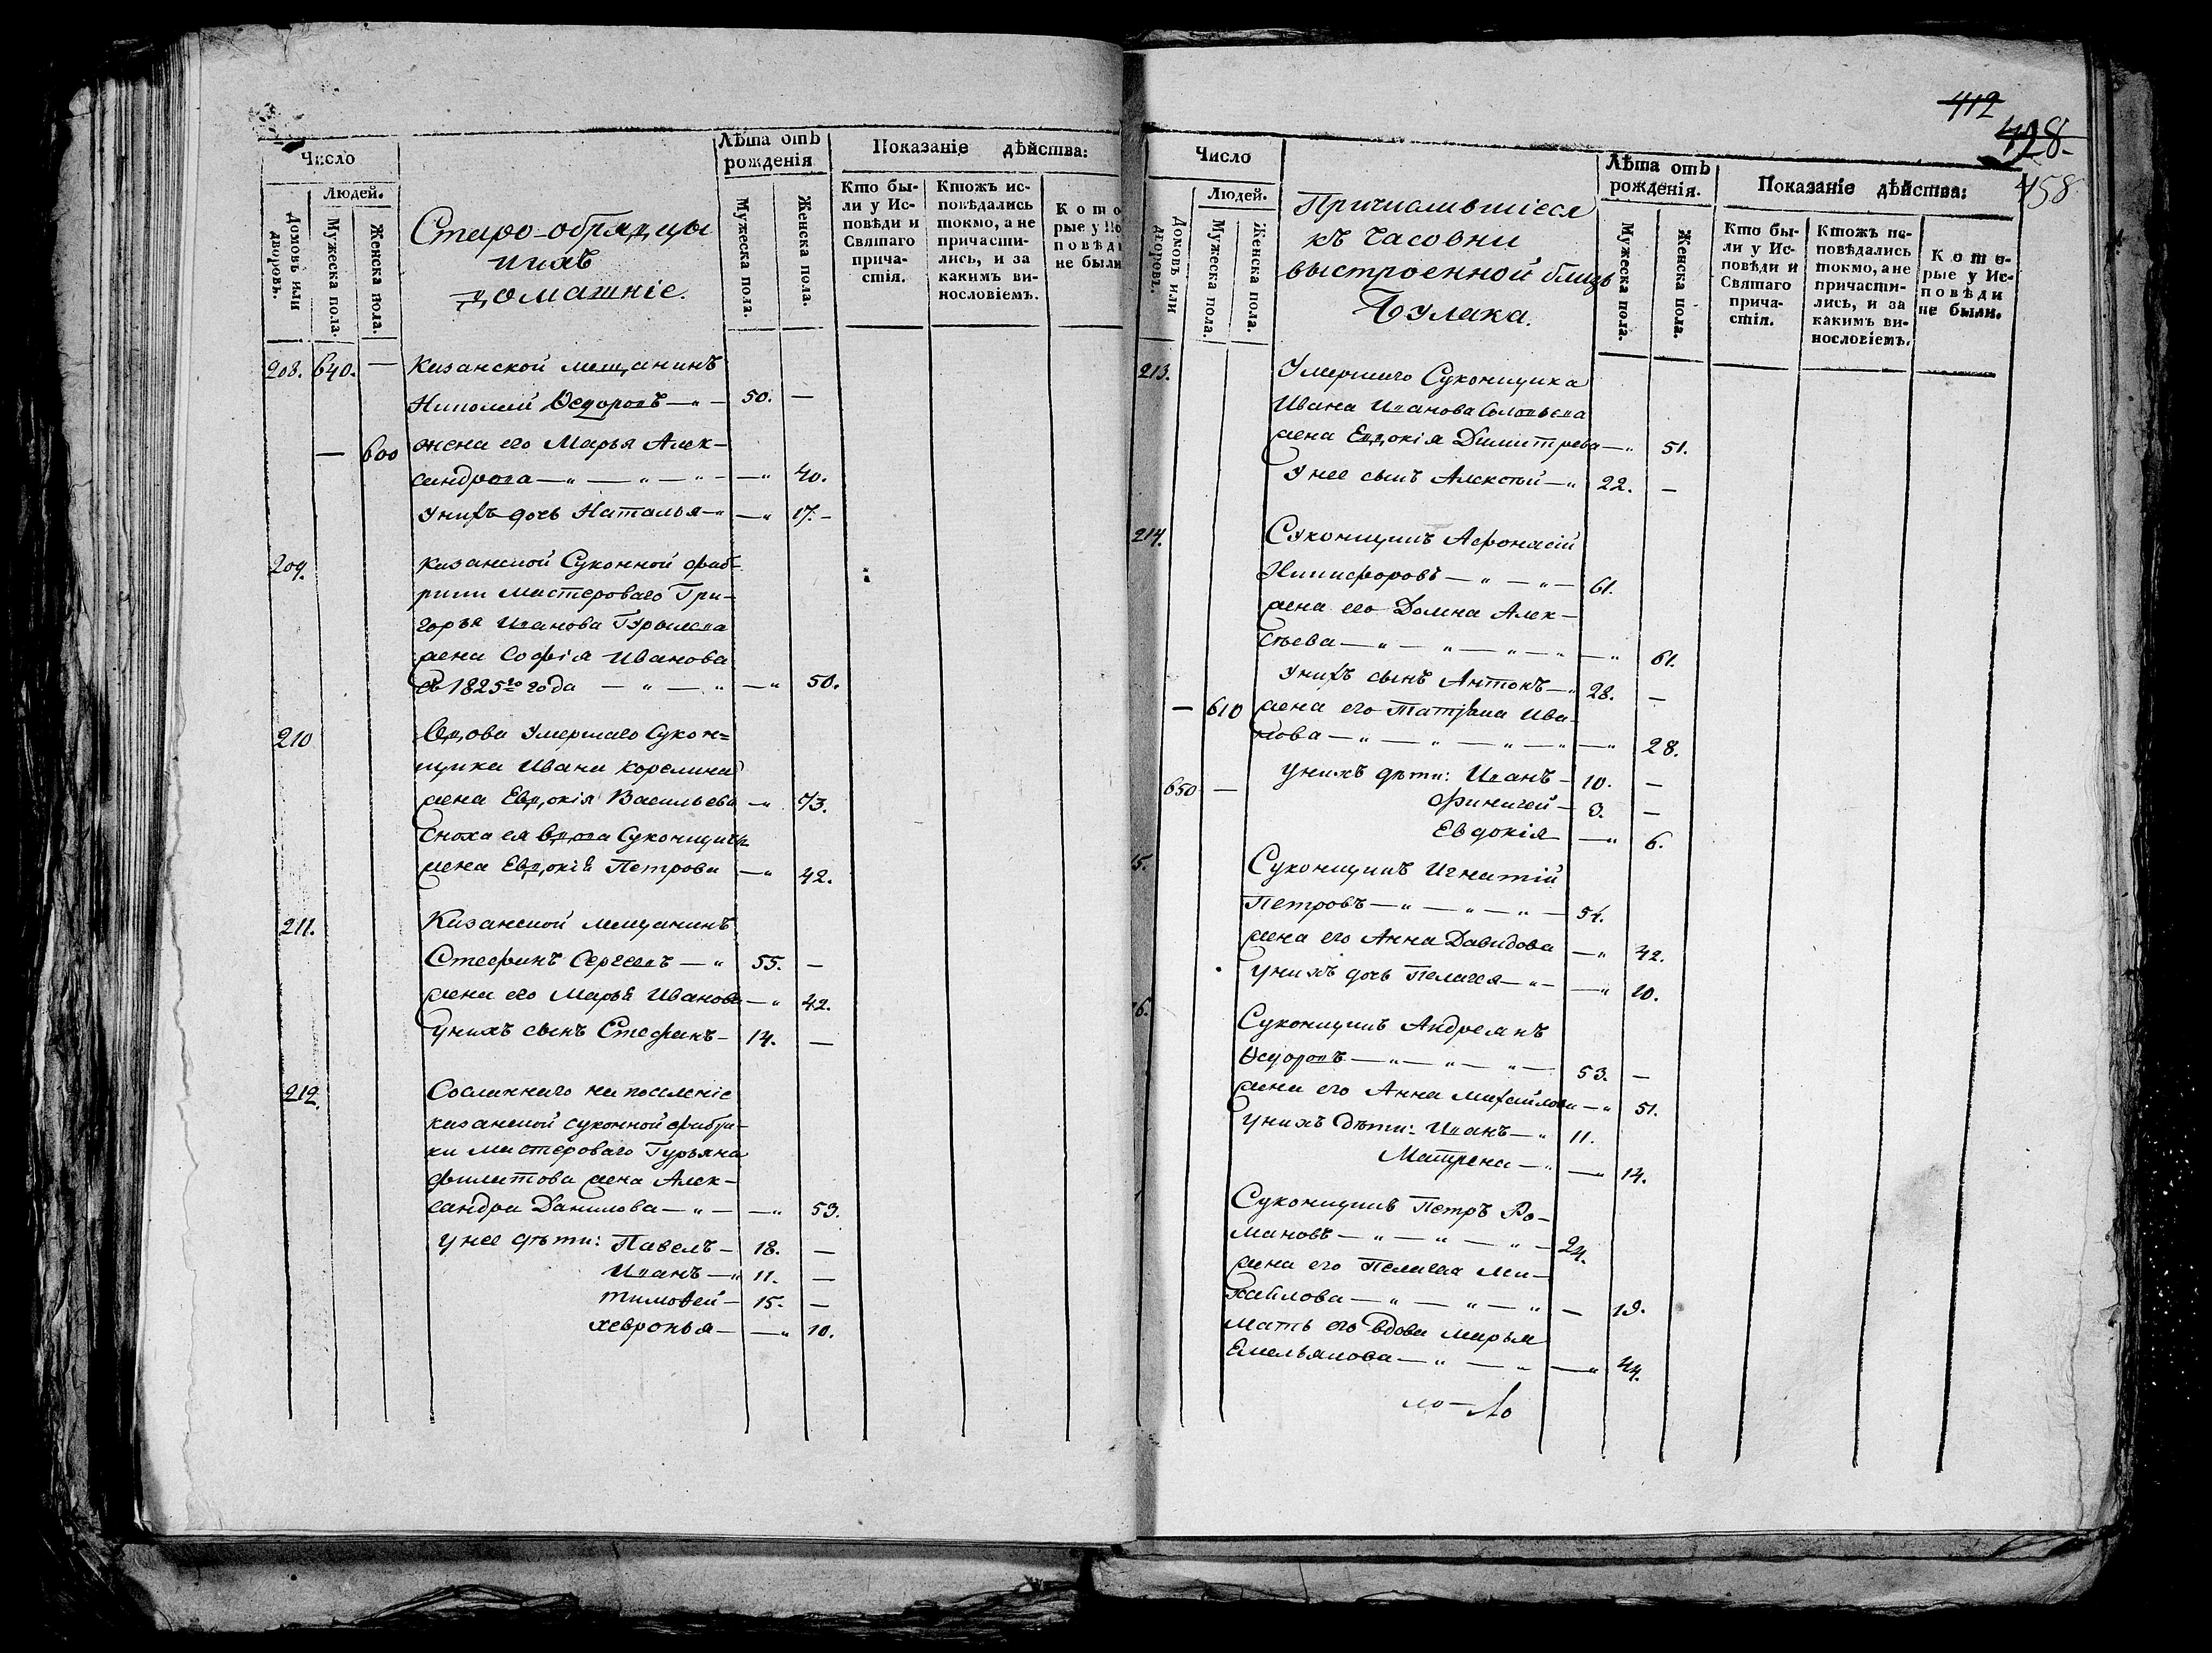 Число
Людей.
Домовъ или дворовъ.
Мужеска пола.
Женска пола.
Старо-обрядцы
и ихъ
домашніе.
Лѣта отъ рожденія
Мужеска пола.
Женска пола.
Показаніе дѣйства:
Кто бы-
ли у Ис-
повѣди и
Святаго
прича-
стія.
Ктожъ ис-
повѣдались
токмо, а не
причасти-
лись, и за
какимъ ви-
нословіемъ.
Кото
рые у Ис
повѣди
не были
208. 640. — Казанской мещанинъ
Николай Ѳедоровъ — 50. —
— 600 жена его Марья Алек-
сандрова — 40.
У нихъ дочь Наталья — 17. —
209. Казанской Суконной фаб-
рики мастероваго Гри-
горья Иванова
жена Софія Иванова
съ 1825го года — 50.
210 Вдова Умершаго Сукон=
щика Ивана Корелина
жена Евдокія Васильева — 73.
Сноха ея вдова Суконщика
жена Евдокія Петрова — 42.
211. Казанской мещанинъ
Стефанъ Сергеевъ — 55. —
жена его Марья Иванова — 42.
У нихъ сынъ Стефанъ — 14. —
212. Сосланнаго на поселеніе
казанской суконной фабри-
ки мастероваго Гурьяна
Филитова жена Алек-
сандра Данилова — 53.
У нее дѣти: Павелъ — 18. —
Иванъ — 11. —
Тимоѳей — 15. —
Хевронья — 10.
412
428.
458
Число
Людей.
Домовъ или дворовъ.
Мужеска пола.
Женска пола.
Причислившіеся
къ часовни
выстроенной близь
Булака.
Лѣта отъ рожденія.
Мужеска пола.
Женска пола.
Показаніе дѣйства:
Кто бы-
ли у Ис-
повѣди и
Святаго
прича-
стія.
Ктожъ ис-
повѣдались
токмо, а не
причасти-
лись, и за
какимъ ви-
нословіемъ.
Кото-
рые у Ис-
повѣди
не были.
213. Умершаго Суконщика
Ивана Иванова Соловьева
жена Евдокія Димитрева — 51.
У нее сынъ Алексѣй — 22. —
214. Суконщикъ Афонасій
Никифоровъ — 61.
жена его Домна Алек-
сѣева — 61.
У нихъ сынъ Антонъ — 28. —
— 610 жена его Татьяна Ива-
нова — 28.
У нихъ дѣти: Иванъ — 10. —
650 — 3. —
Евдокія — 6.
15. Суконщикъ Игнатій
Петровъ — 54.
жена его Анна Давидова — 42.
У нихъ дочь Пелагея — 10.
16. Суконщикъ Андреянъ
Ѳедоровъ — 53. —
жена его Анна Михайлова — 51.
У нихъ дѣти: Иванъ — 11.
Матрена — 14.
Суконщикъ Петръ Ро-
мановъ — 24.
жена его Пелагея Ми-
хайлова — 19.
мать его вдова Марья
Емельянова — 44.